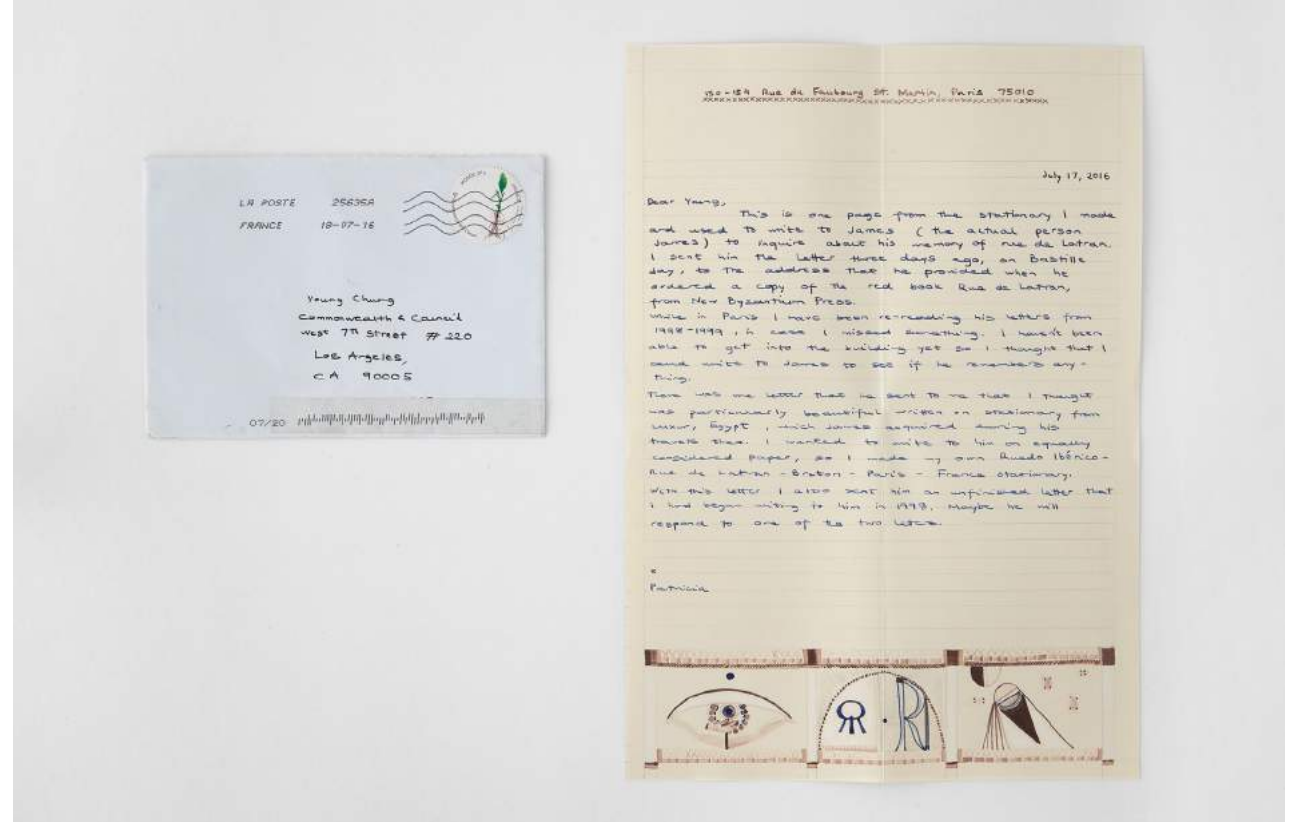 LA POSTE 25635A
FRANCE 18-07-16
Young Chung
Commonwealth & Council
West 7th Street # 220
Los Angeles,
CA 90005
07/20
150-154 Rue du Faubourg St. Martin, Paris 75010
July 17, 2016
Dear Young,
This is one page from the stationary I made
and used to write to James (the actual person
James) to inquire about his memory of rue de Latran.
I sent him the letter three days ago, on Bastille
day, to the address that he provided when he
ordered a copy of the red book Rue de Latran,
from New Byzantium Press.
While in Paris I have been re-reading his letters from
1998-1999, in case I missed something. I haven't been
able to get into the building yet so I thought that I
could write to James to see if he remembers any-
thing.
There was one letter that he sent to me that I thought
was particularly beautiful written on stationary from
Luxor, Egypt, which James acquired during his
travels there. I wanted to write to him on equally
considered paper, so I made my own Ruedo Ibérico-
Rue de Latran - Breton - Paris - France stationary.
With this letter I also sent him an unfinished letter that
I had began writing to him in 1998. Maybe he will
respond to one of the two letters.
x
Patricia
R R